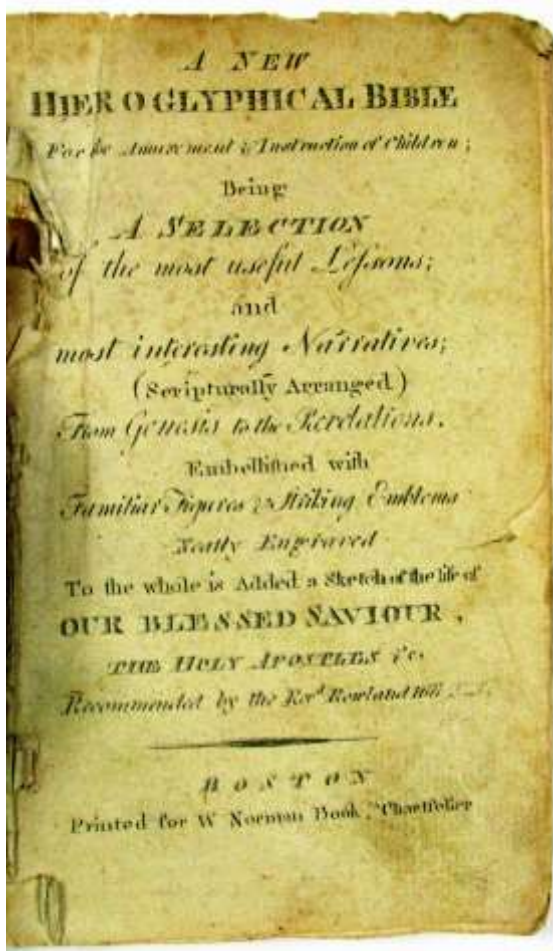 A NEW
HIEROGLYPHICAL BIBLE
For the Amusement & Instruction of Children;
Being
A SELECTION
of the most useful Leſsons;
and
most interesting Narratives;
(Scripturally Arranged)
From Genesis to the Revelations.
Embellished with
Familiar Figures & Striking Emblems
Neatly Engraved
To the whole is Added a Sketch of the life of
OUR BLESSED SAVIOUR,
THE HOLY APOSTLES &c.
Recommended by the Revd. Rowland Hill
BOSTON
Printed for W Norman Book, & Chartseller